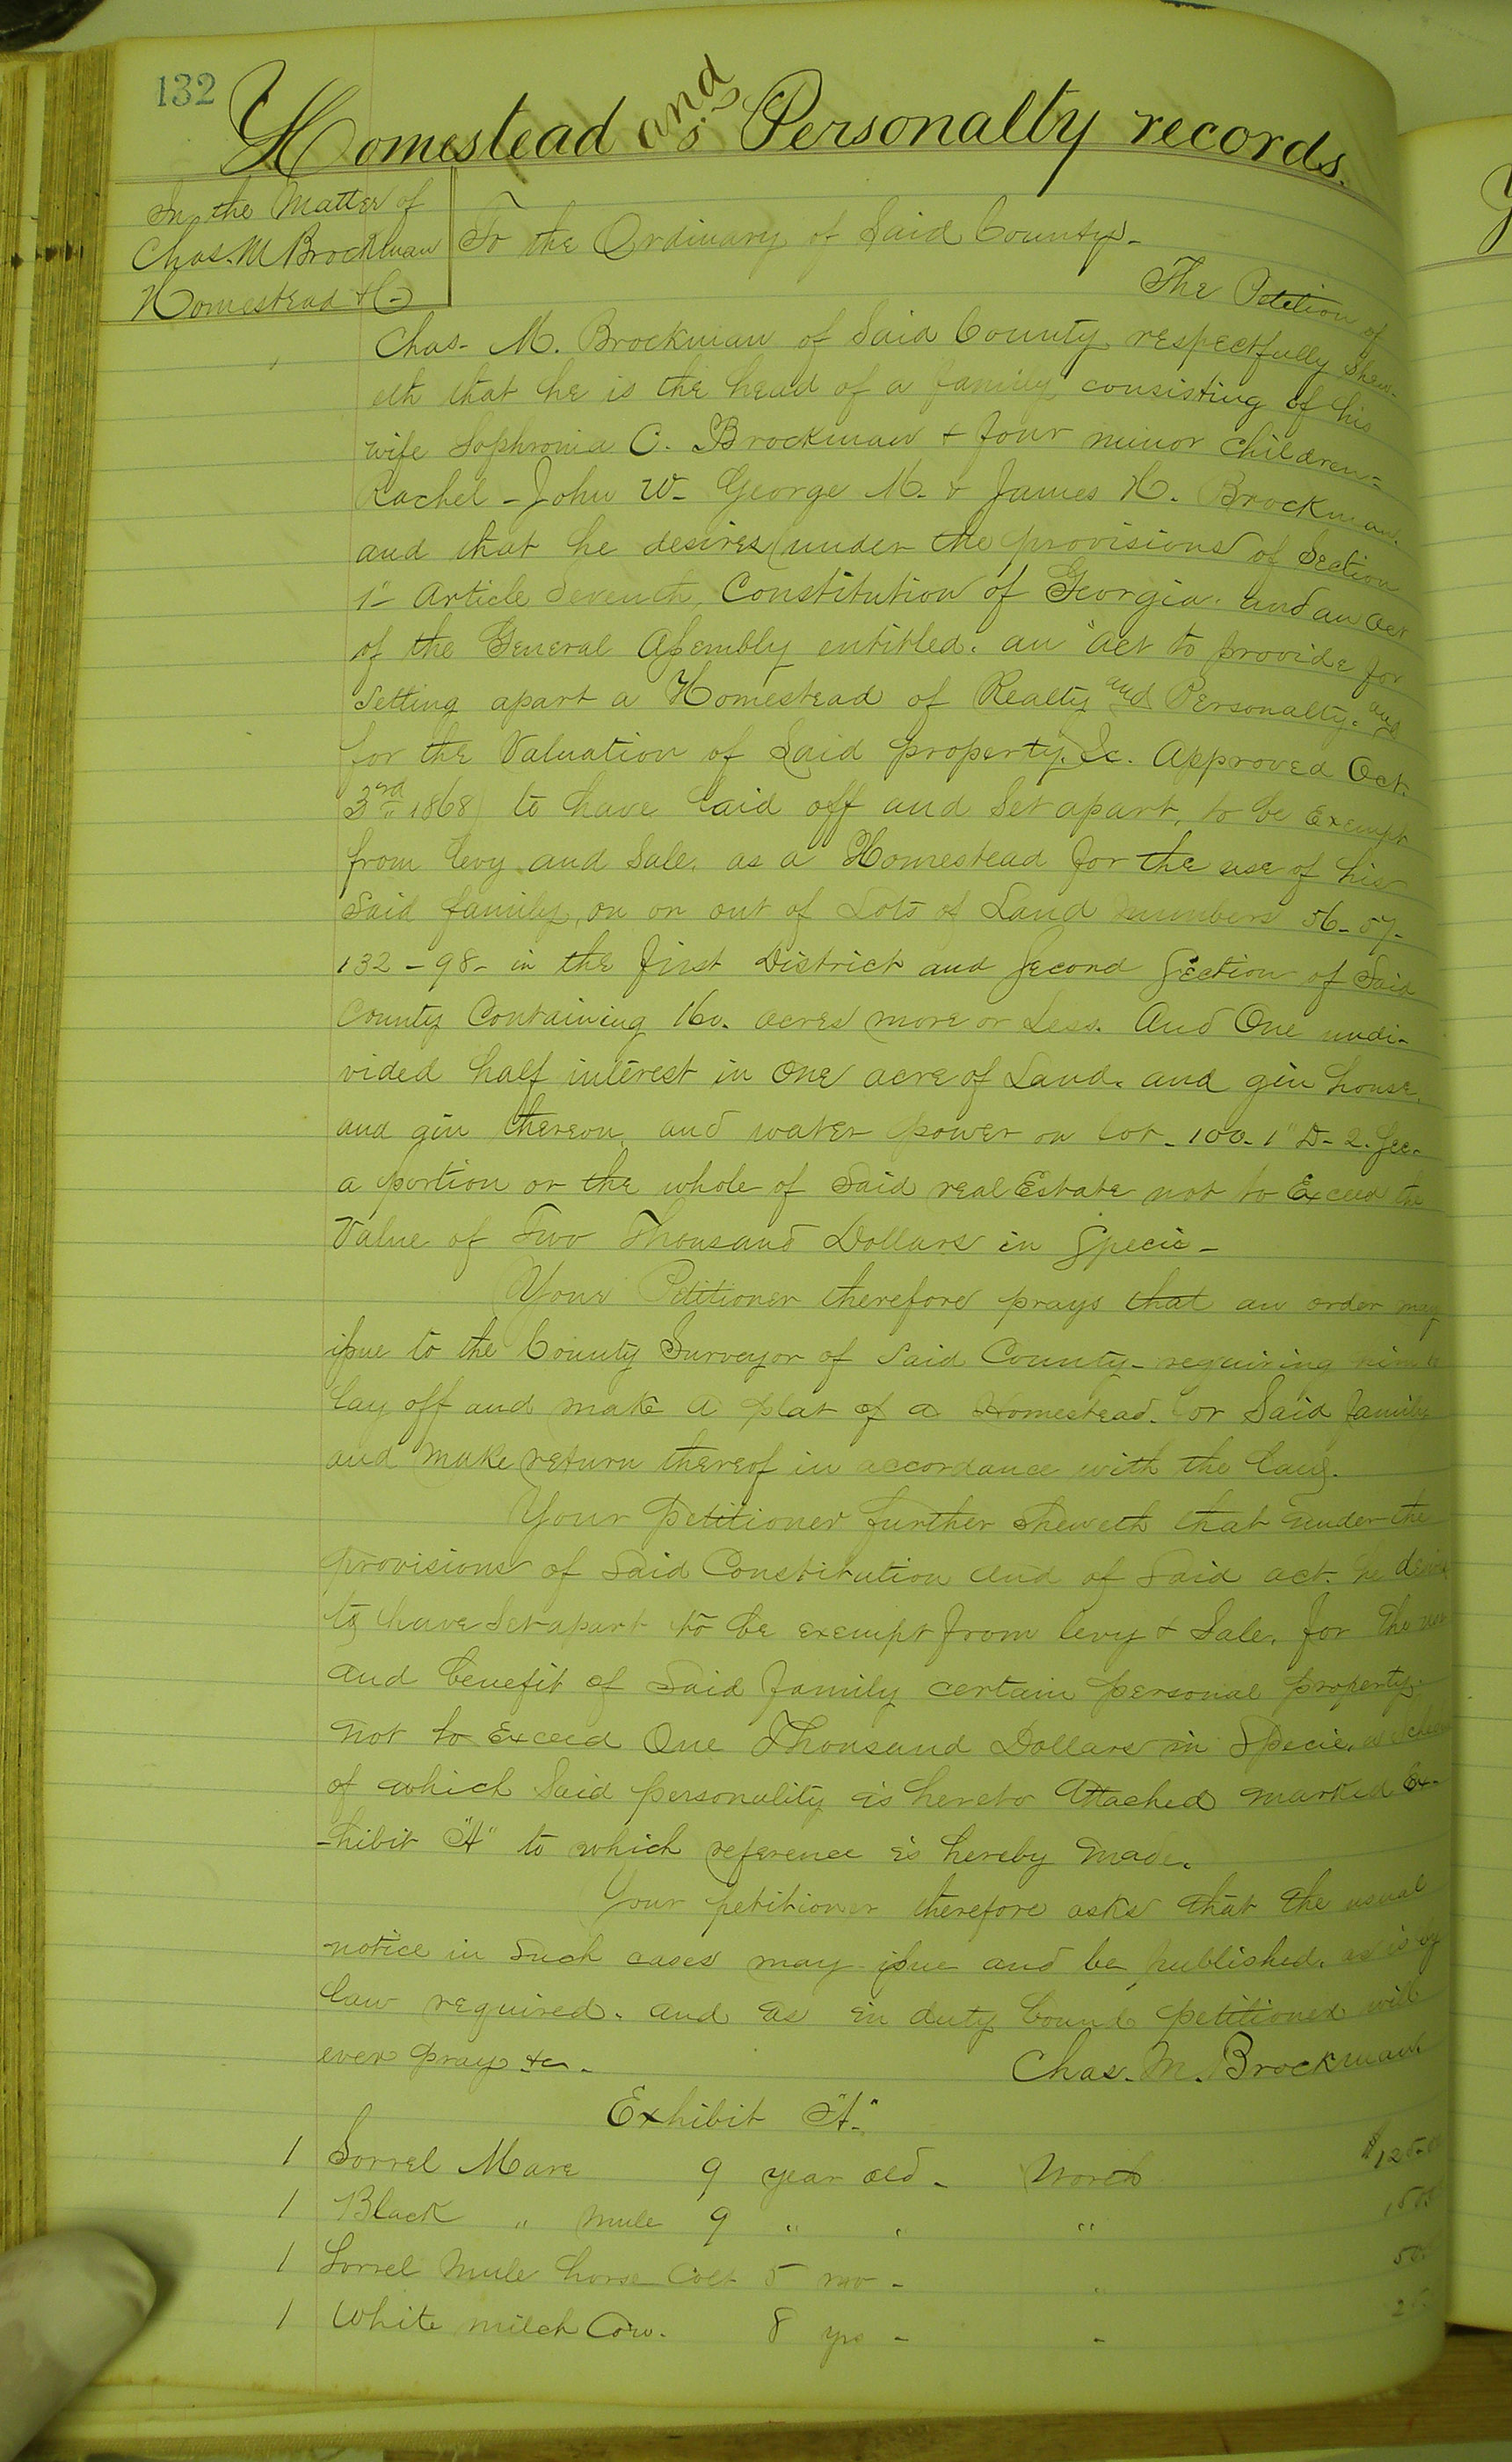 132
Homestead and Personalty records.
In the Matter of
Chas. M Brockman
Homestead &C
To the Ordinary of Said County-
The Petition of
Chas- M. Brockman of Said County respectfully Shew-
eth that he is the head of a family consisting of his
wife Sophronia C. Brockman & four minor children-
Rachel - John W- George M. & James H. Brockman.
and that he desires (under the provisions of Section
1" Article Seventh, Constitution of Georgia. and an act
of the General Assembly entitled. an "act to provide for
Setting apart a Homestead of Realty and Personalty. and
for the Valuation of Said property. &c. Approved Oct.
3rd 1868) to have laid off and Set apart, to be Exempt
from levy and Sale. as a Homestead for the use of his
Said family, on or out of Lots of Land numbers 56- 57-
132 - 98- in the first District and Second Section of Said
County Containing 160. acres more or Less. And One undi-
vided half interest in One acre of Land. and gin house.
and gin thereon, and water power on lot- 100- 1" D- 2. Sec.
a portion or the whole of Said real Estate not to Exceed the
Value of Two Thousand Dollars in Specie-
Your Petitioner therefore prays that an order may
issue to the County Surveyor of Said County- requiring him to
lay off and make a plat of a Homestead. for Said family
and make return thereof in accordance with the law.
Your Petitioner further Sheweth that under the
provisions of Said Constitution and of Said act. he desires
to have Set apart to be exempt from levy & Sale. for the use
and benefit of Said family certain personal property.
not to Exceed One Thousand Dollars in Specie. a
of which Said personality is hereto attached marked Ex-
-hibit "A" to which reference is hereby made.
Your petitioner therefore asks that the usual
notice in Such cases may issue and be published. as is by
law required. and as in duty bound petitioner will
ever pray &c-
Chas. M. Brockman.
Exhibit "A."
1 Sorrel Mare 9 year old - Worth $125.00
1 Black " mule 9 " " "
1 Sorrel Mule horse Colt 5 mo - "
1 White milch Cow. 8 yrs - -